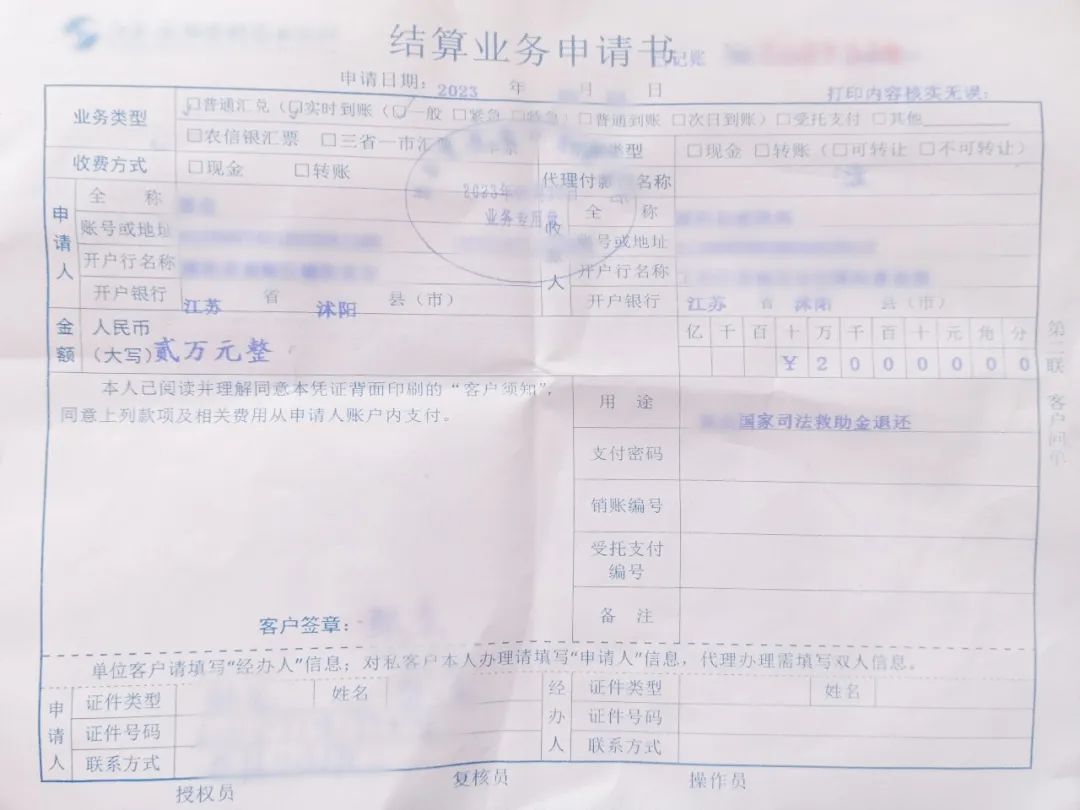 结算业务申请书
记账
申请日期：2023 年 月 日
打印内容核实无误：
业务类型 ☑普通汇兑（☑实时到账（☑一般 □紧急 □特急）□普通到账 □次日到账）□受托支付 □其他
□农信银汇票 □三省一市汇票 类型 □现金 □转账（□可转让 □不可转让）
收费方式 □现金 □转账 代理付款 名称
2023年
业务专用章
申请人 全称
账号或地址
开户行名称
开户银行 江苏 省 沭阳 县（市）
收 人 全称
账号或地址
开户行名称
开户银行 江苏 省 沭阳 县（市）
金额 人民币（大写）贰万元整
亿 千 百 十 万 千 百 十 元 角 分
¥ 2 0 0 0 0 0 0
第二联 客户回单
本人已阅读并理解同意本凭证背面印刷的“客户须知”，
同意上列款项及相关费用从申请人账户内支付。
用途 国家司法救助金退还
支付密码
销账编号
受托支付
编号
备注
客户签章：
单位客户请填写“经办人”信息；对私客户本人办理请填写“申请人”信息，代理办理需填写双人信息。
申请人 证件类型 姓名
证件号码
联系方式
经办人 证件类型 姓名
证件号码
联系方式
授权员 复核员 操作员